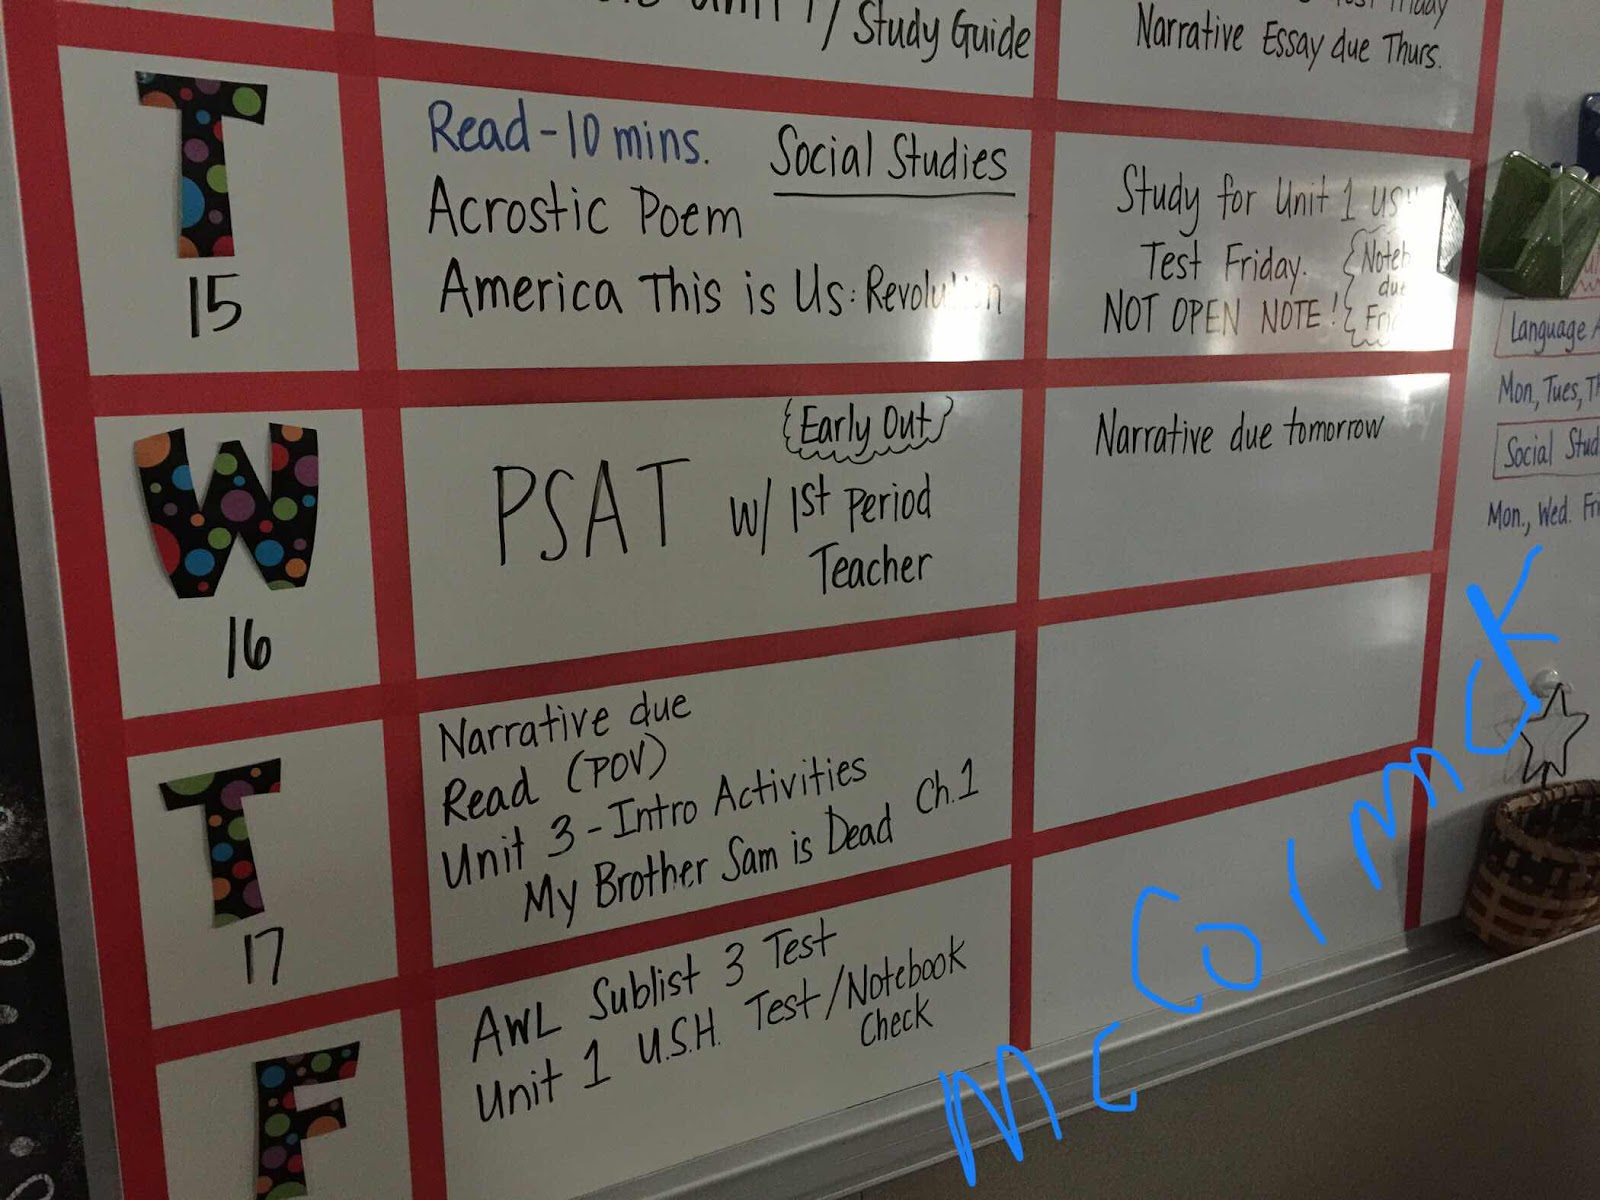 Unit 1/ Study Guide
Narrative Essay due Thurs.
T
15
Read - 10 mins.
Social Studies
Acrostic Poem
America This is Us: Revolution
Study for Unit 1
Test Friday.
NOT OPEN NOTE!
due
W
16
{Early Out}
PSAT w/ 1st Period
Teacher
Narrative due tomorrow
T
17
Narrative due
Read (POV)
Unit 3 - Intro Activities
My Brother Sam is Dead Ch. 1
F
AWL Sublist 3 Test
Unit 1 U.S.H. Test/Notebook
Check
Language
Mon, Tues,
Social
Mon., Wed.
McCormick